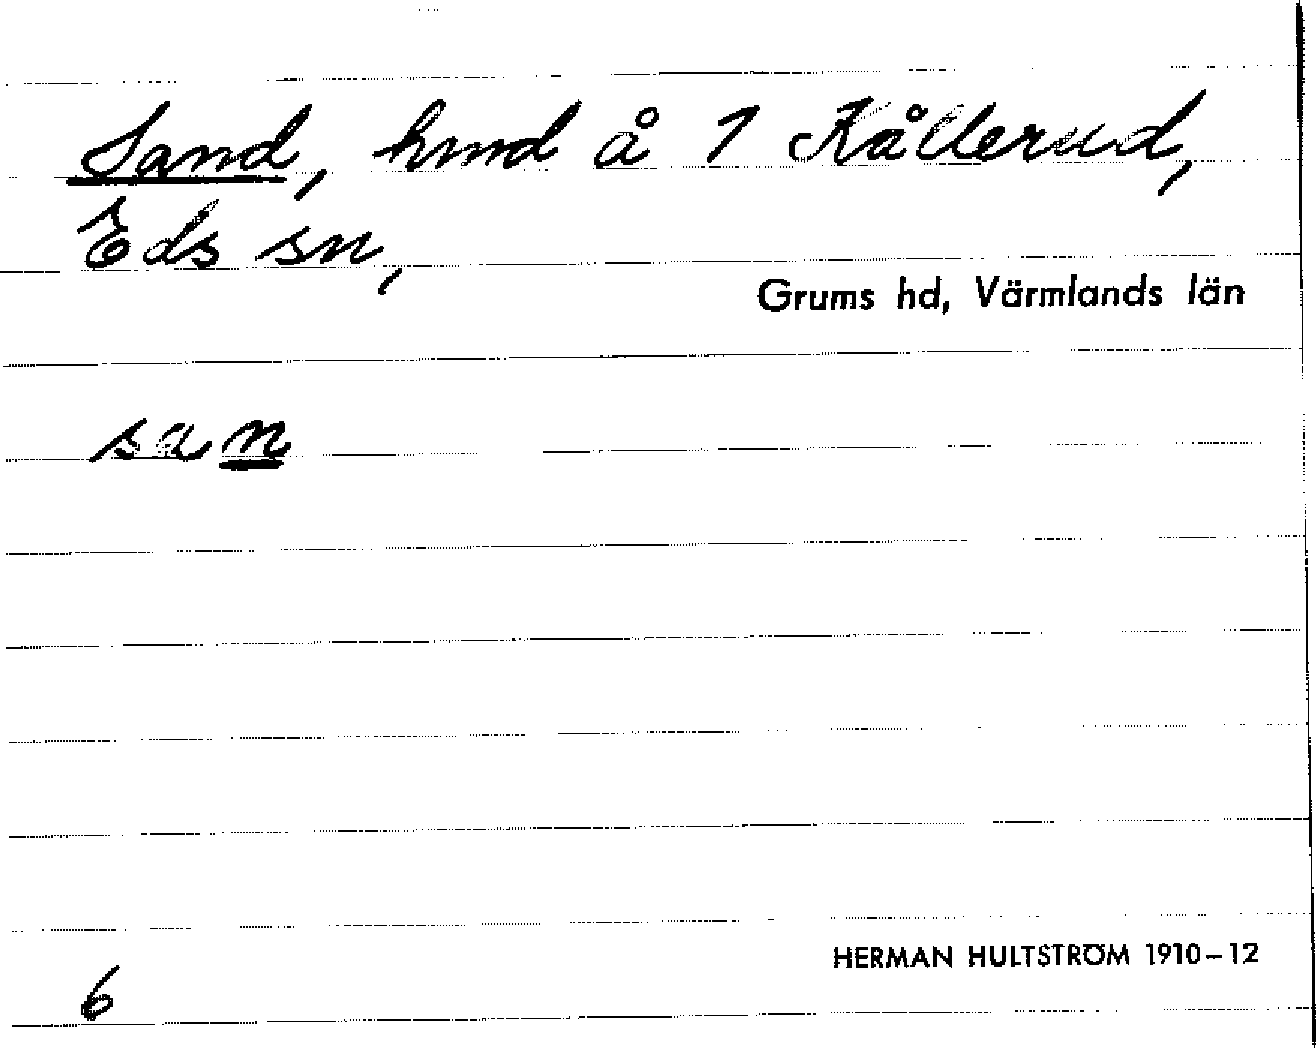 Sand, hmd å 1 Kållerud,
Eds sn,
Grums hd, Värmlands län
san
HERMAN HULTSTRÖM 1910–12
6